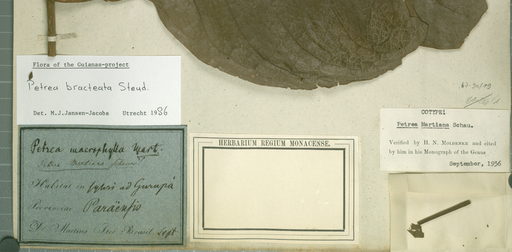 Flora of the Guianas-project
Petrea bracteata Steud.
Det. M.J.Jansen-Jacobs Utrecht 1986
Petrea macrophylla Mart.
Petrea Martiana Schau.
Habitat in sylvis ad Gurupá
Provinciae Paraënsis
Dr Martius Iter Brasil. Sept.
HERBARIUM REGIUM MONACENSE.
COTYPE:
Petrea Martiana Schau.
Verified by H. N. MOLDENKE and cited
by him in his Monograph of the Genus
September, 1936